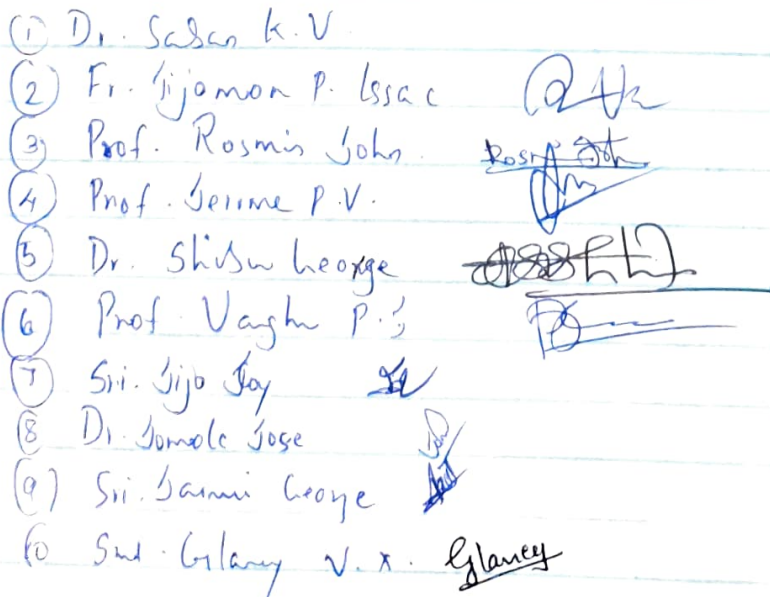 1 Dr. Saban K.V
2 Fr. Jijomon P. Issac
3 Prof. Rosmin John Rosmi John
4 Prof. Jerime P.V.
5 Dr. Shibu George
6 Prof. P.J
7 Sri. Jijo Joy
8 Dr. Jomole Jose
9 Sri. Jaimi George
10 Smt. Glancy V.X. Glancy